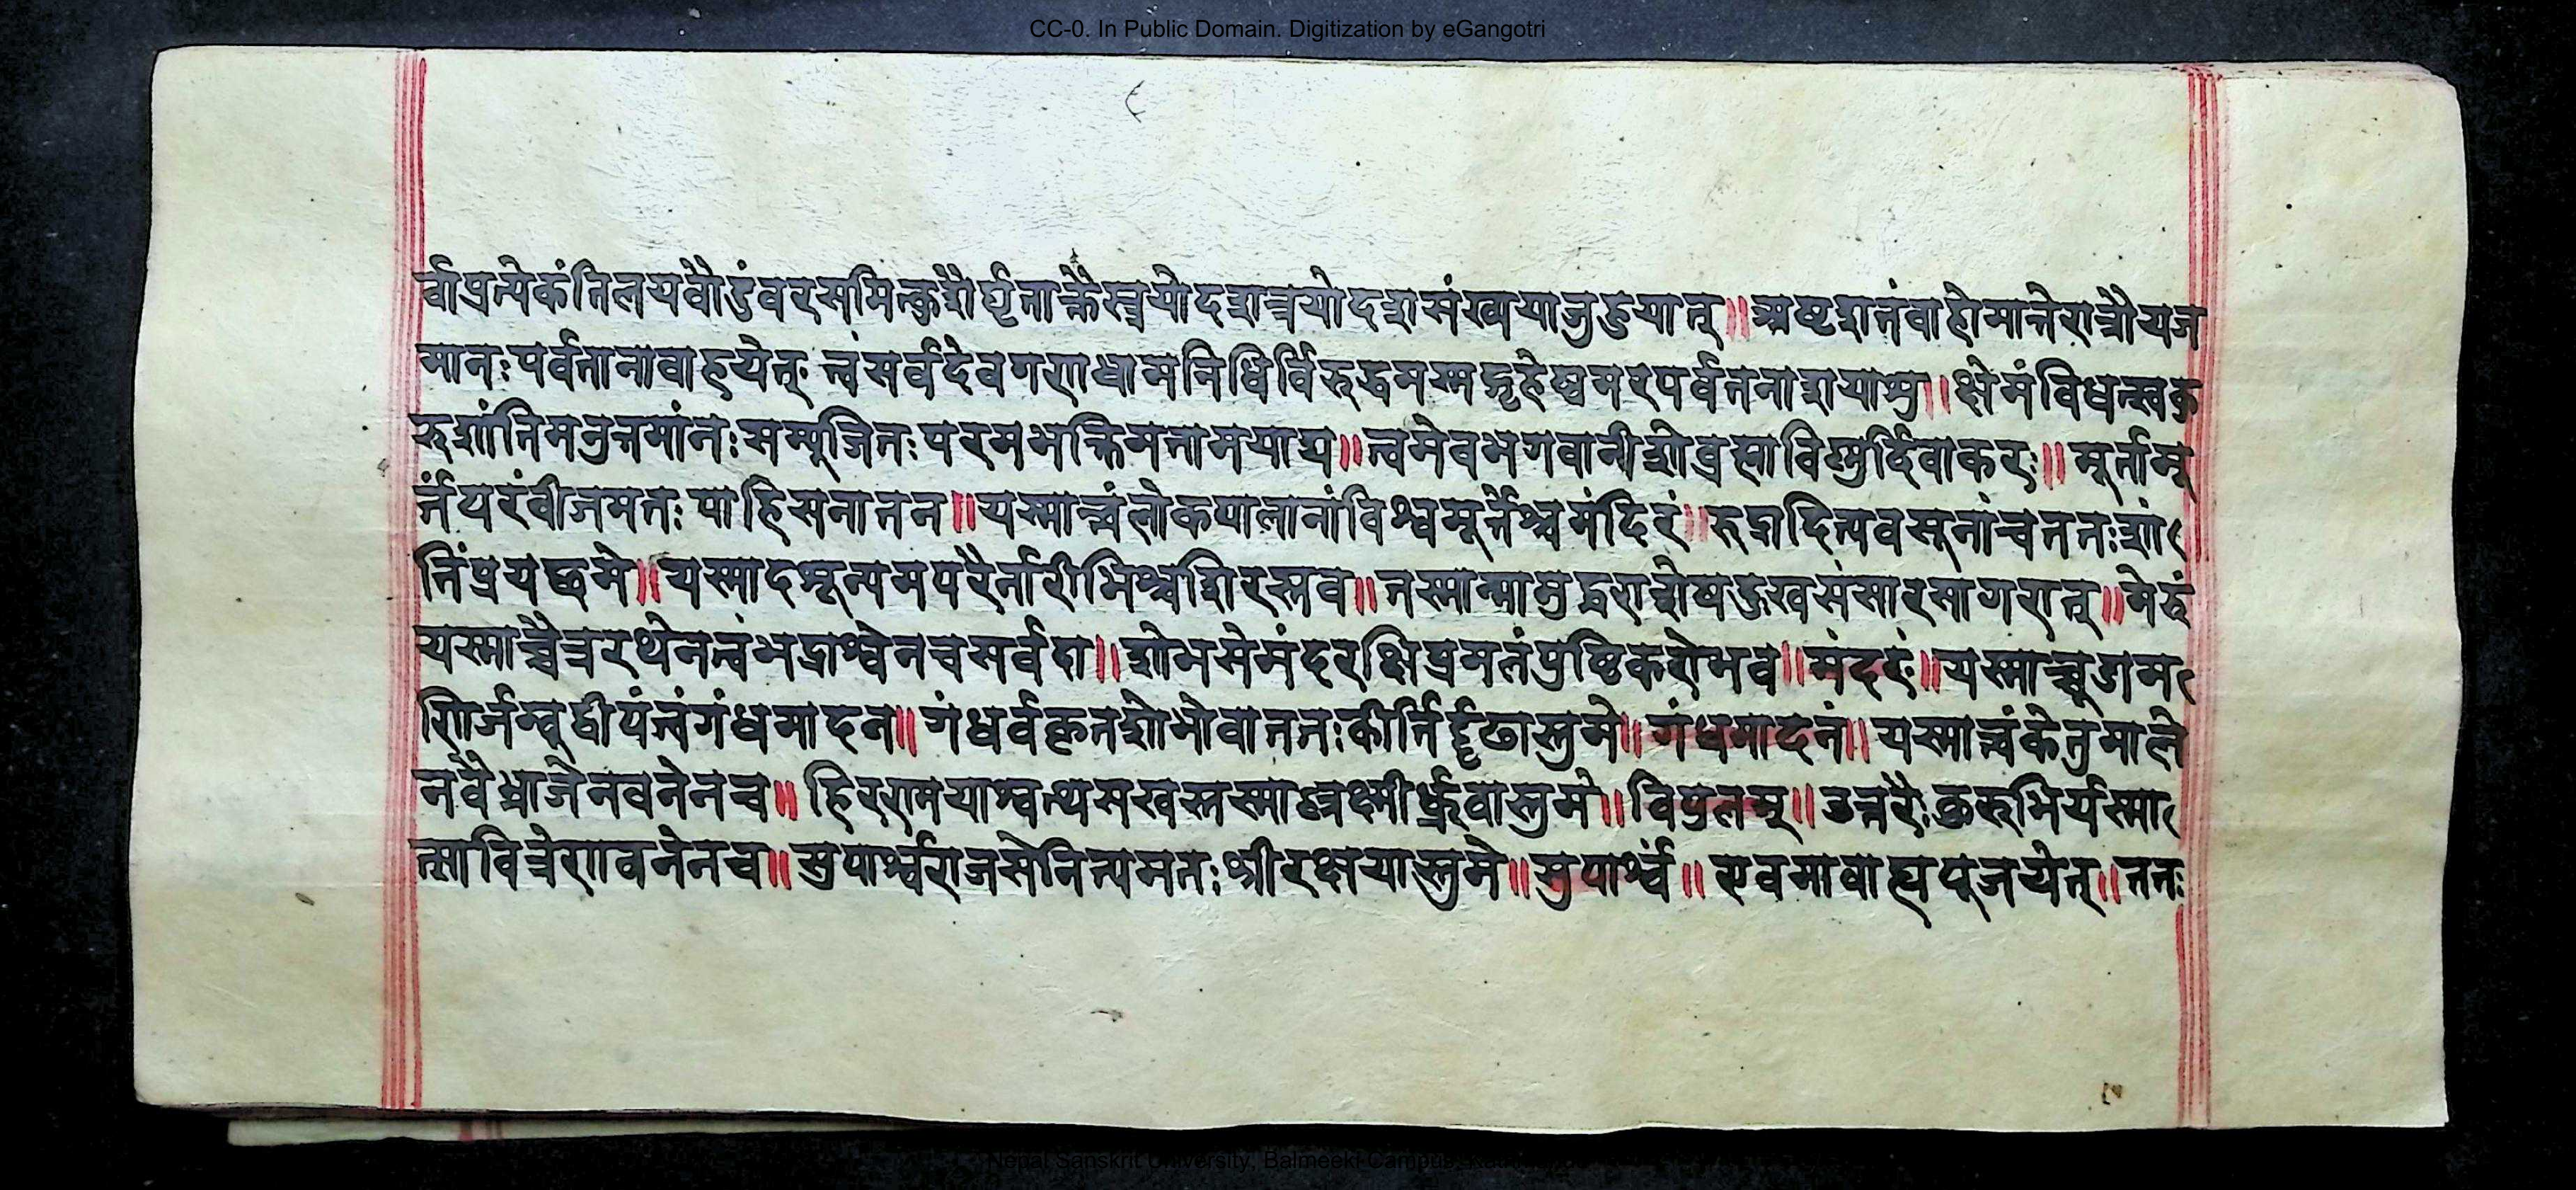 CC-0. In Public Domain. Digitization by eGangotri
र्वाप्रत्येकंतिलयवौदुंवरसमित्कुशैर्घृताक्तैस्त्रयोदशत्रयोदशसंख्ययाजुहुयात्॥अष्टशतंवाहोमान्तेरात्रौयज
मानःपर्वतानावाहयेत् त्वंसर्वदेवगणधामनिधिर्विरुद्धमस्मद्गृहेष्वमरपर्वतनाशयाशु॥क्षेमंविधत्स्वकु
रुशांतिमनुत्तमांनःसम्पूजितःपरमभक्तिमतामयाद्य॥त्वमेवभगवानीशोब्रह्माविष्णुर्दिवाकरः॥मूर्तामू
र्तंपरंवीजमतःपाहिसनातन॥यस्मात्त्वंलोकपालानांविश्वमूर्तेश्चमंदिरं॥रुद्रादित्यवसूनांचततःशां
तिंप्रयछमे॥यस्मादशून्यममरैर्नारीभिश्चशिरस्तव॥तस्मान्मामुद्धराशेषदुखसंसारसागरात्॥मेरुं
यस्माच्चैत्ररथेनत्वंभद्राश्वेनचसर्वदा॥शोभसेमंदरक्षिप्रमतंपुष्टिकरोभव॥मंदरं॥यस्माच्चूडाम
णिर्जम्बुद्वीपंत्वंगंधमादन॥गंधर्वकृतशोभोवाततःकीर्तिर्दृढास्तुमे॥गंधमादनं॥यस्मात्त्वंकेतुमाले
नवैभ्राजेनवनेनच॥हिरण्मयाश्वत्थसखस्तस्माल्लक्ष्मीर्ध्रुवास्तुमे॥विपुलम्॥उत्तरैःकुरुभिर्यस्मा
त्सावित्रेणवनेनच॥सुपार्श्वराजसेनित्यमतःश्रीरक्षयास्तुमे॥सुपार्श्वं॥एवमावाह्यपूजयेत्॥ततः
Nepal Sanskrit University, Balmeeki Campus,